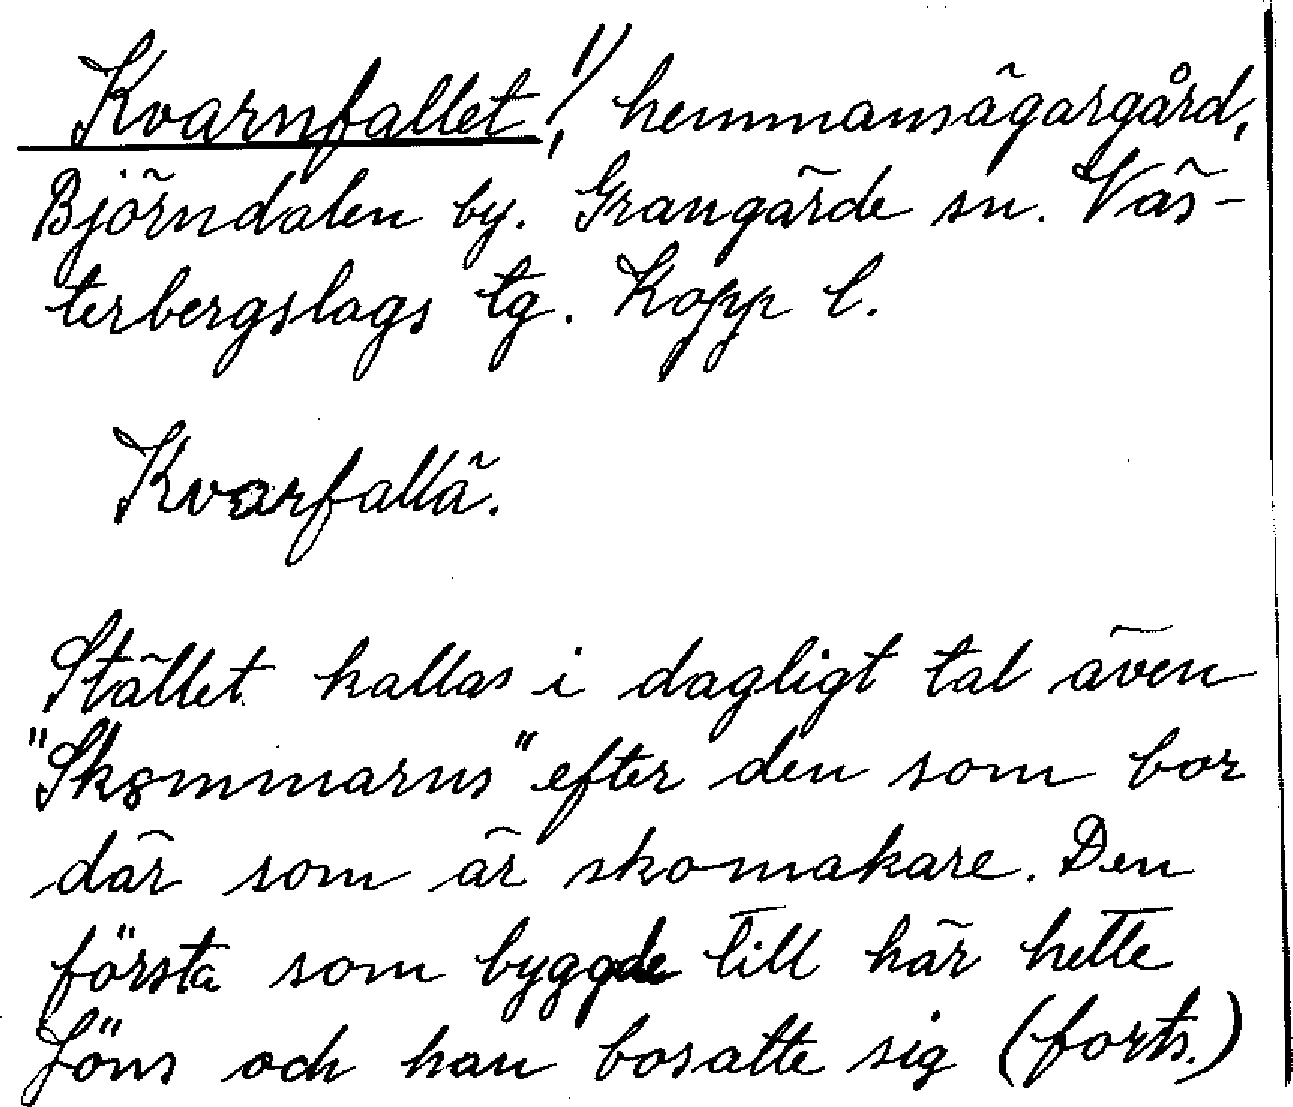 Kvarnfallet,! 1) hemmansägargård,
Björndalen by. Grangärde sn. Väs-
terbergslags tg. Kopp l.
Kvarfallä.
Stället kallas i dagligt tal även
"Skommarns" efter den som bor
där som är skomakare. Den
första som byggde till här hette
Jöns och han bosatte sig (forts.)